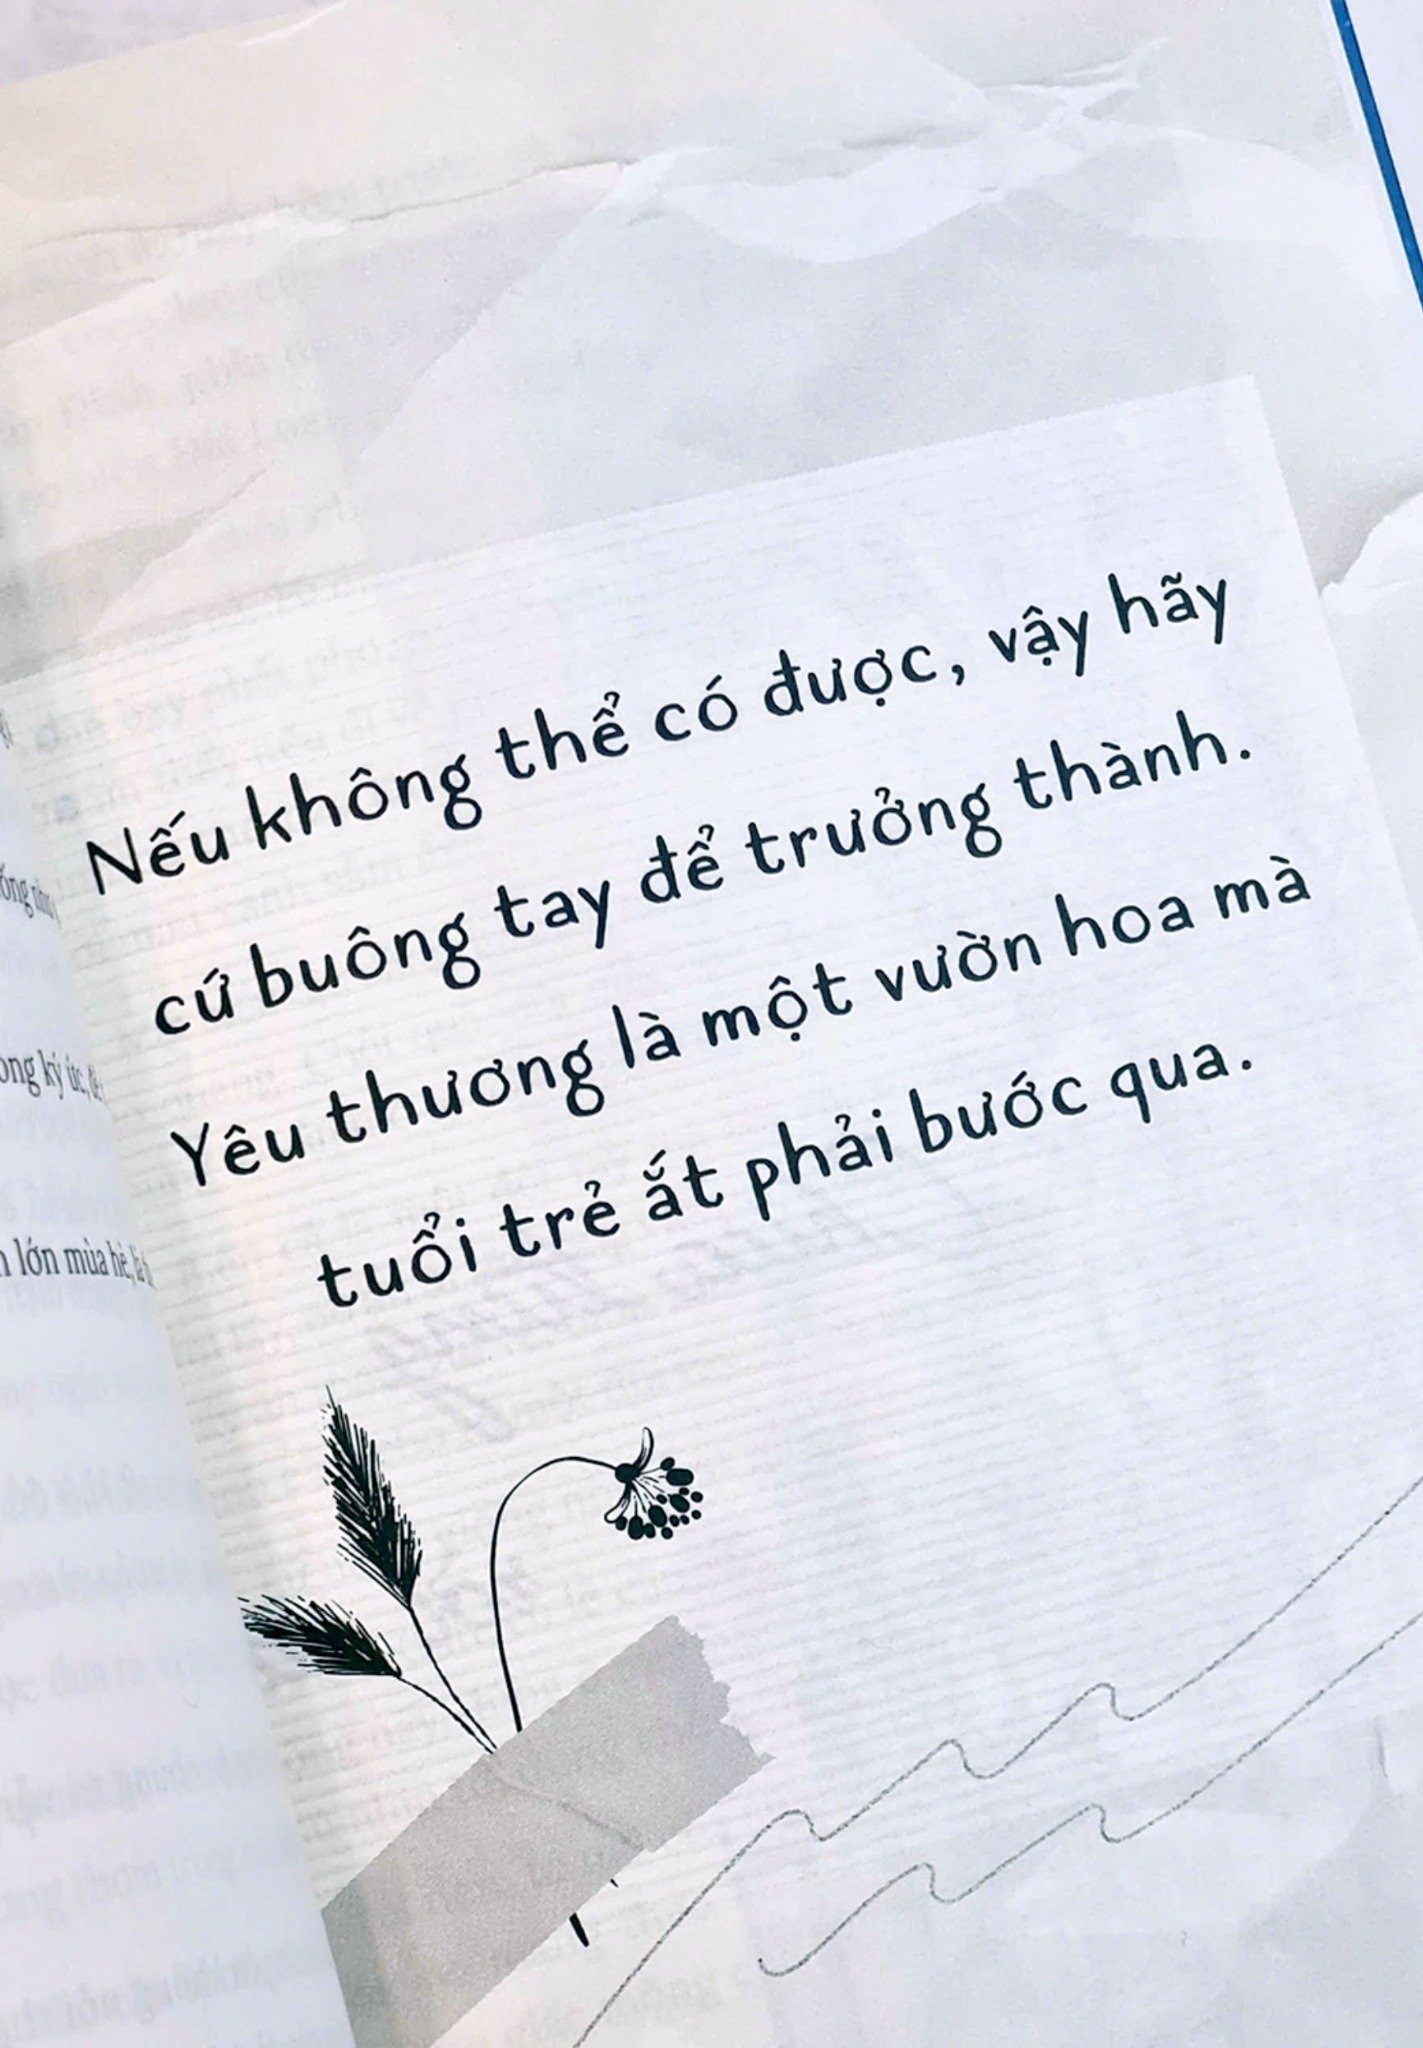 Nếu không thể có được, vậy hãy
cứ buông tay để trưởng thành.
Yêu thương là một vườn hoa mà
tuổi trẻ ắt phải bước qua.
ký ức,
lớn mùa hè,